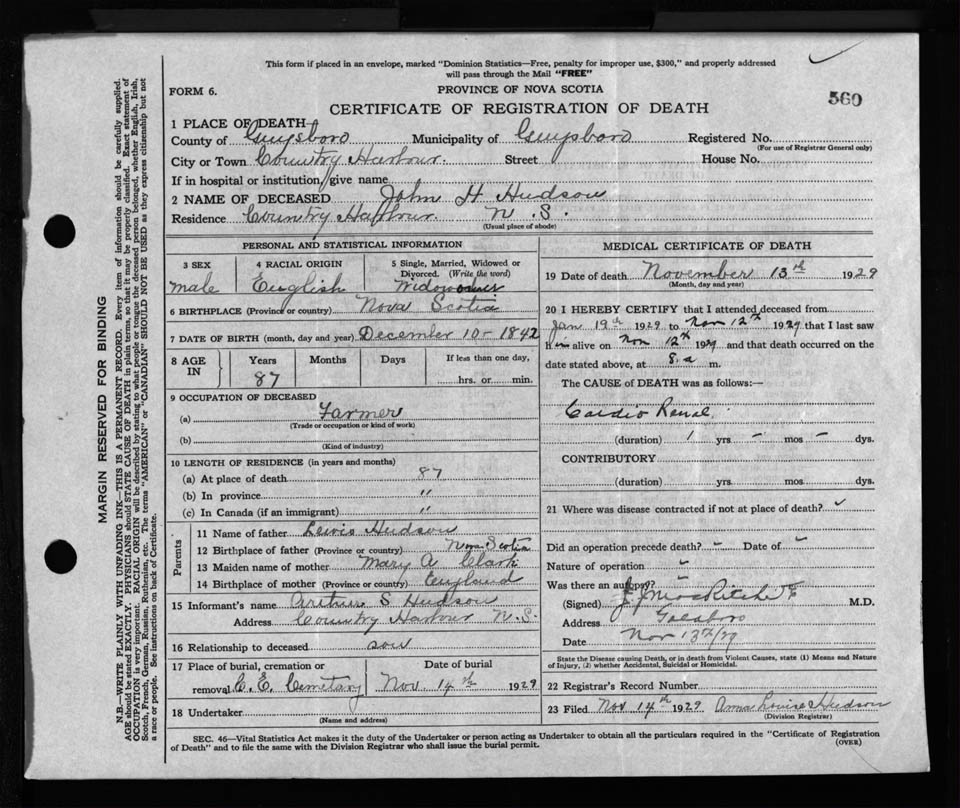 This form if placed in an envelope, marked "Dominion Statistics—Free, penalty for improper use, $300," and properly addressed
will pass through the Mail "FREE"
FORM 6.
PROVINCE OF NOVA SCOTIA
560
CERTIFICATE OF REGISTRATION OF DEATH
1 PLACE OF DEATH
County of Guysboro Municipality of Guysboro Registered No.
(For use of Registrar General only)
City or Town Country Harbour. Street House No.
If in hospital or institution, give name
2 NAME OF DECEASED John H Hudson
Residence Country Harbour N.S.
(Usual place of abode)
PERSONAL AND STATISTICAL INFORMATION
3 SEX
male
4 RACIAL ORIGIN
English
5 Single, Married, Widowed or
Divorced. (Write the word)
6 BIRTHPLACE (Province or country) Nova Scotia
7 DATE OF BIRTH (month, day and year) December 10 - 1842
8 AGE IN
Years Months Days If less than one day,
87 hrs. or min.
9 OCCUPATION OF DECEASED
(a) Farmer
(Trade or occupation or kind of work)
(b)
(Kind of industry)
10 LENGTH OF RESIDENCE (in years and months)
(a) At place of death 87
(b) In province "
(c) In Canada (if an immigrant) "
Parents
11 Name of father Lewis Hudson
12 Birthplace of father (Province or country) Nova Scotia
13 Maiden name of mother Mary A Clark
14 Birthplace of mother (Province or country) England
15 Informant's name Arthur S Hudson
Address Country Harbour N.S.
16 Relationship to deceased son
17 Place of burial, cremation or Date of burial
removal C.E. Cemetary Nov 14th 1929
18 Undertaker
(Name and address)
MEDICAL CERTIFICATE OF DEATH
19 Date of death November 13th 1929
(Month, day and year)
20 I HEREBY CERTIFY that I attended deceased from
Jan 19th 1929 to Nov 12th 1929 that I last saw
him alive on Nov 12th 1929 and that death occurred on the
date stated above, at 8. a m.
The CAUSE of DEATH was as follows:—
Cardio Renal.
(duration) 1 yrs - mos - dys.
CONTRIBUTORY
(duration) yrs mos dys.
21 Where was disease contracted if not at place of death?
Did an operation precede death? Date of
Nature of operation
Was there an autopsy?
(Signed) M.D.
Address Goldboro
Date Nov 13th/29
State the Disease causing Death, or in death from Violent Causes, state (1) Means and Nature
of Injury, (2) whether Accidental, Suicidal or Homicidal.
22 Registrar's Record Number
23 Filed Nov 14th 1929 Anna Louise Hudson
(Division Registrar)
SEC. 46—Vital Statistics Act makes it the duty of the Undertaker or person acting as Undertaker to obtain all the particulars required in the "Certificate of Registration
of Death" and to file the same with the Division Registrar who shall issue the burial permit.
(OVER)
MARGIN RESERVED FOR BINDING
N.B.—WRITE PLAINLY WITH UNFADING INK—THIS IS A PERMANENT RECORD. Every item of information should be carefully supplied.
AGE should be stated EXACTLY. PHYSICIANS should STATE CAUSE OF DEATH in plain terms, so that it may be properly classified. Exact statement of
OCCUPATION is very important. RACIAL ORIGIN will be described by stating to what people or tongue the deceased person belonged, whether English, Irish,
Scotch, French, German, Russian, Ruthenian, etc. The terms "AMERICAN" or "CANADIAN" SHOULD NOT BE USED as they express citizenship but not
a race or people. See instructions on back of Certificate.